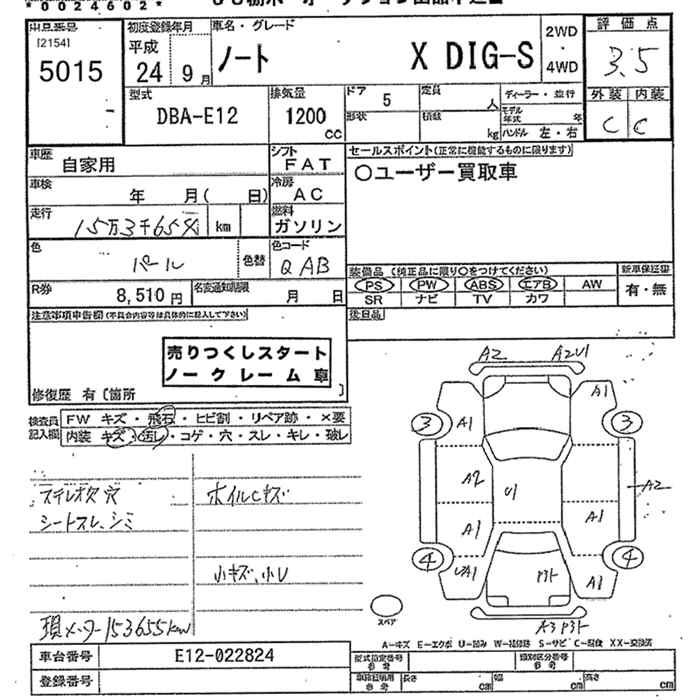 *0024602*
出品番号 初度登録年月 車名・グレード 2WD ・ 4WD 評価点
[2154]
5015 平成 24 9月 ノート X DIG-S 3.5
外装 内装
C C
型式 DBA-E12 排気量 1200 cc
ドア 5 定員 人 ディーラー・並行
形状 積載 kg モデル年式 年
ハンドル 左・右
車歴 自家用 シフト FAT
車検 年 月( 日) 冷房 AC
走行 km 燃料 ガソリン
色 パール 色替 色コード QAB
R券 8,510円 名変通知期限 月 日
セールスポイント(正常に機能するものに限ります)
○ユーザー買取車
装備品 (純正品に限り○をつけてください) 新車保証書
PS PW ABS エアB AW 有・無
SR ナビ TV カワ
後日品
注意事項申告欄(不具合内容等は具体的に記入して下さい)
売りつくしスタート
ノークレーム車
修復歴 有〔箇所 〕
検査員記入欄
FW キズ・飛石・ヒビ割・リペア跡・×要
内装 キズ・汚レ・コゲ・穴・スレ・キレ・破レ
ステレオ欠 穴 ホイルCキズ
シートスレ、シミ
小キズ、小U
現メーター153655km
A2 A2U1
A1
3 A1 3
A2 U1 A2
A1 A1
4 UA1 A1 4
スペア
A-キズ E-エクボ U-凹み W-補修跡 S-サビ C-腐食 XX-交換済
車台番号 E12-022824
型式指定番号 参考 類別区分番号 参考
登録番号
車検証明用 参考 長さ cm 幅 cm 高さ cm